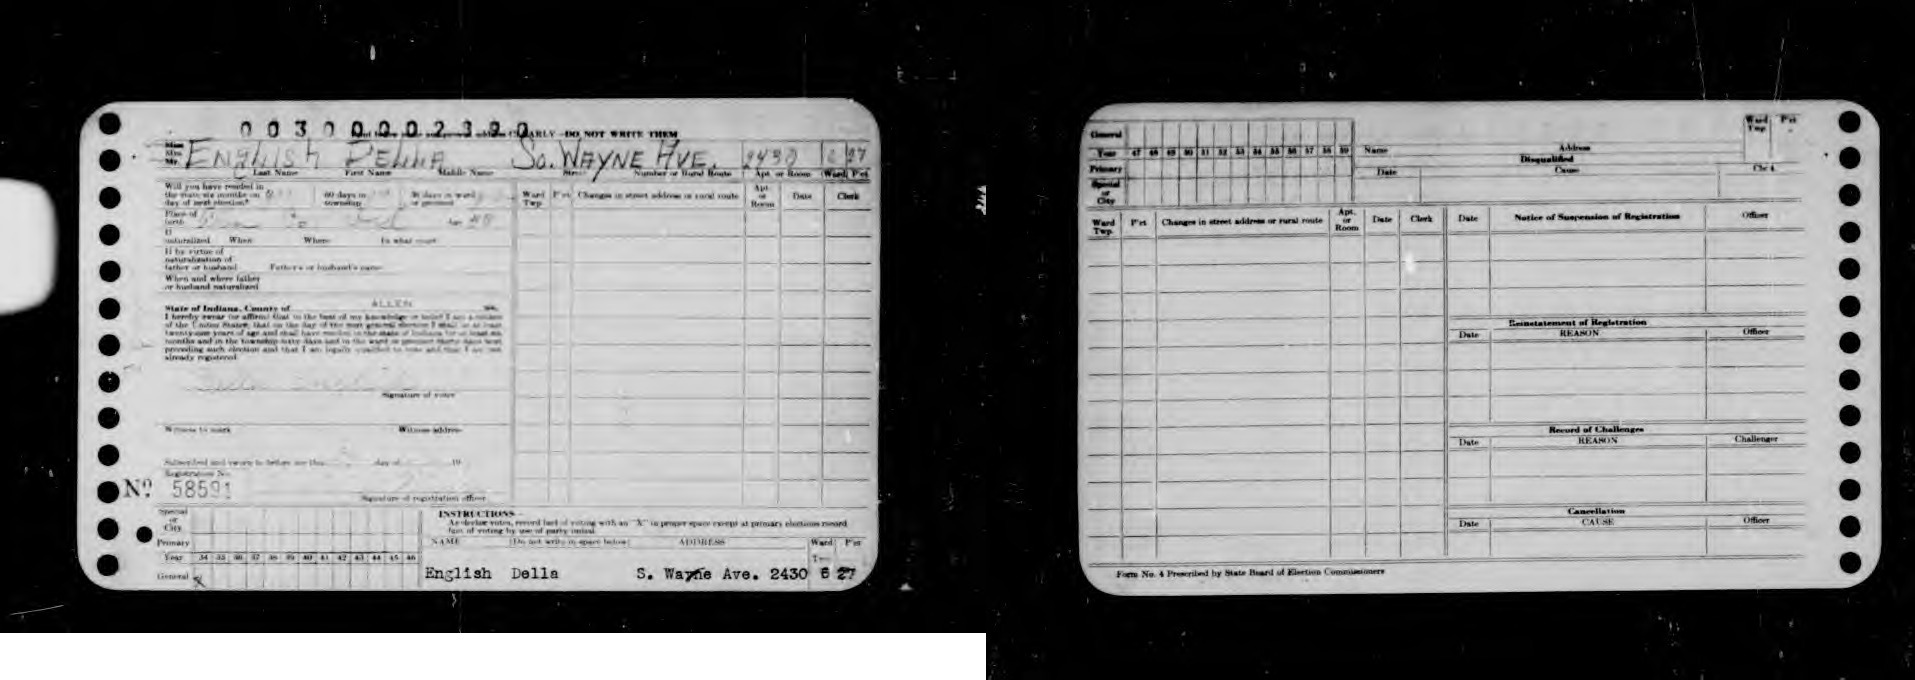 00300002390
PRINT
CLEARLY - DO NOT WRITE THEM
Miss
Mrs.
Mr. ENGLISH DELLA So. WAYNE AVE. 2430 6 27
Last Name First Name Middle Name Street Number or Rural Route Apt. or Room Ward P'ct
Will you have resided in
the state six months on
day of next election?
60 days in
township
30 days in ward
or precinct
Place of
birth
Age 48
If
naturalized When Where In what court
If by virtue of
naturalization of
father or husband Father's or husband's name
When and where father
or husband naturalized
State of Indiana, County of ALLEN ss.
I hereby swear (or affirm) that to the best of my knowledge or belief I am a citizen
of the United States; that on the day of the next general election I shall be at least
twenty-one years of age and shall have resided in the state of Indiana for at least six
months and in the township sixty days and in the ward or precinct thirty days next
preceding such election and that I am legally qualified to vote and that I am not
already registered.
Della English
Signature of voter
Witness to mark Witness address
Subscribed and sworn to before me this day of 19
Registration No.
No. 58591
Signature of registration officer
Ward
Twp. P'ct Changes in street address or rural route Apt.
or
Room Date Clerk
Special
or
City
Primary
Year 34 35 36 37 38 39 40 41 42 43 44 45 46
General X
INSTRUCTIONS—
As elector votes, record fact of voting with an "X" in proper space except at primary elections record
fact of voting by use of party initial.
NAME (Do not write in space below) ADDRESS Ward P'ct
Twp.
English Della S. Wayne Ave. 2430 6 27
General
Year 47 48 49 50 51 52 53 54 55 56 57 58 59
Primary
Special
or
City
Name Address Ward
Twp. P'ct
Disqualified
Date Cause Clerk
Ward
Twp. P'ct Changes in street address or rural route Apt.
or
Room Date Clerk
Date Notice of Suspension of Registration Officer
Reinstatement of Registration
Date REASON Officer
Record of Challenges
Date REASON Challenger
Cancellation
Date CAUSE Officer
Form No. 4 Prescribed by State Board of Election Commissioners